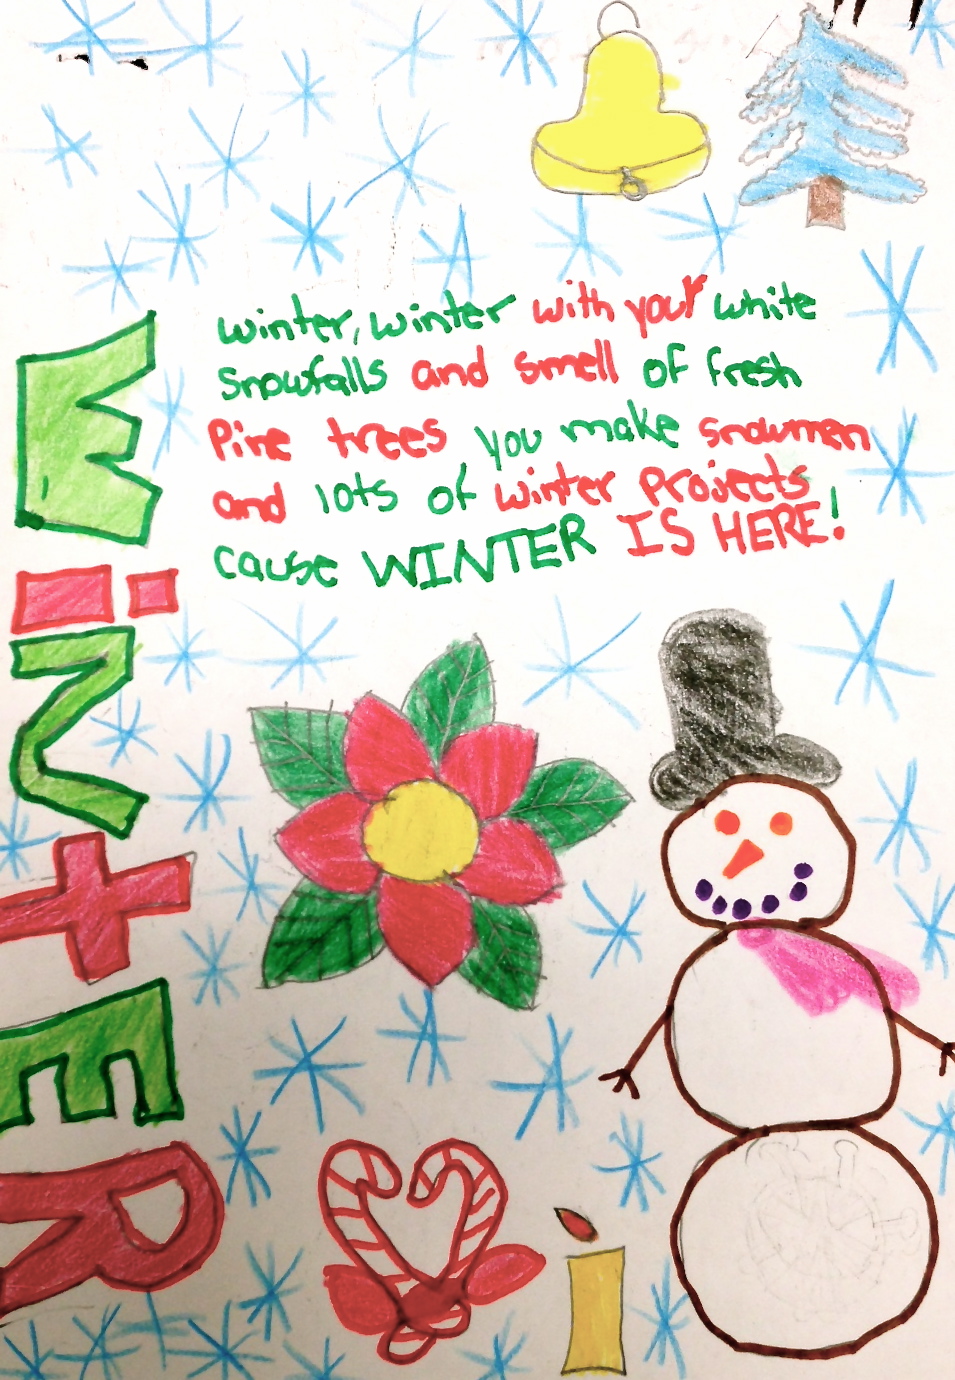 WiNtER
winter, winter with your white
snowfalls and smell of fresh
Pine trees you make snowmen
and lots of winter Projects
cause WINTER IS HERE!